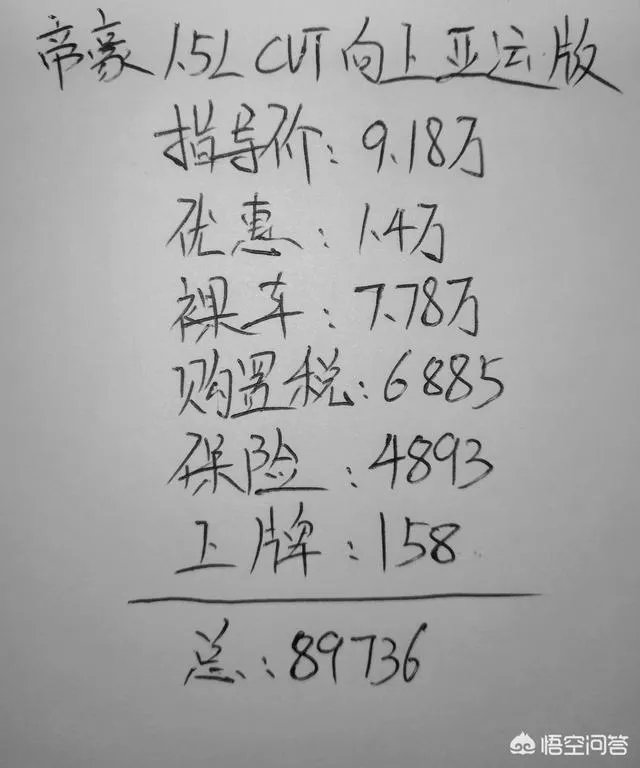 帝豪1.5L CVT向上亚运版
指导价:9.18万
优惠:1.4万
裸车:7.78万
购置税:6885
保险:4893
上牌:158
总:89736
悟空问答